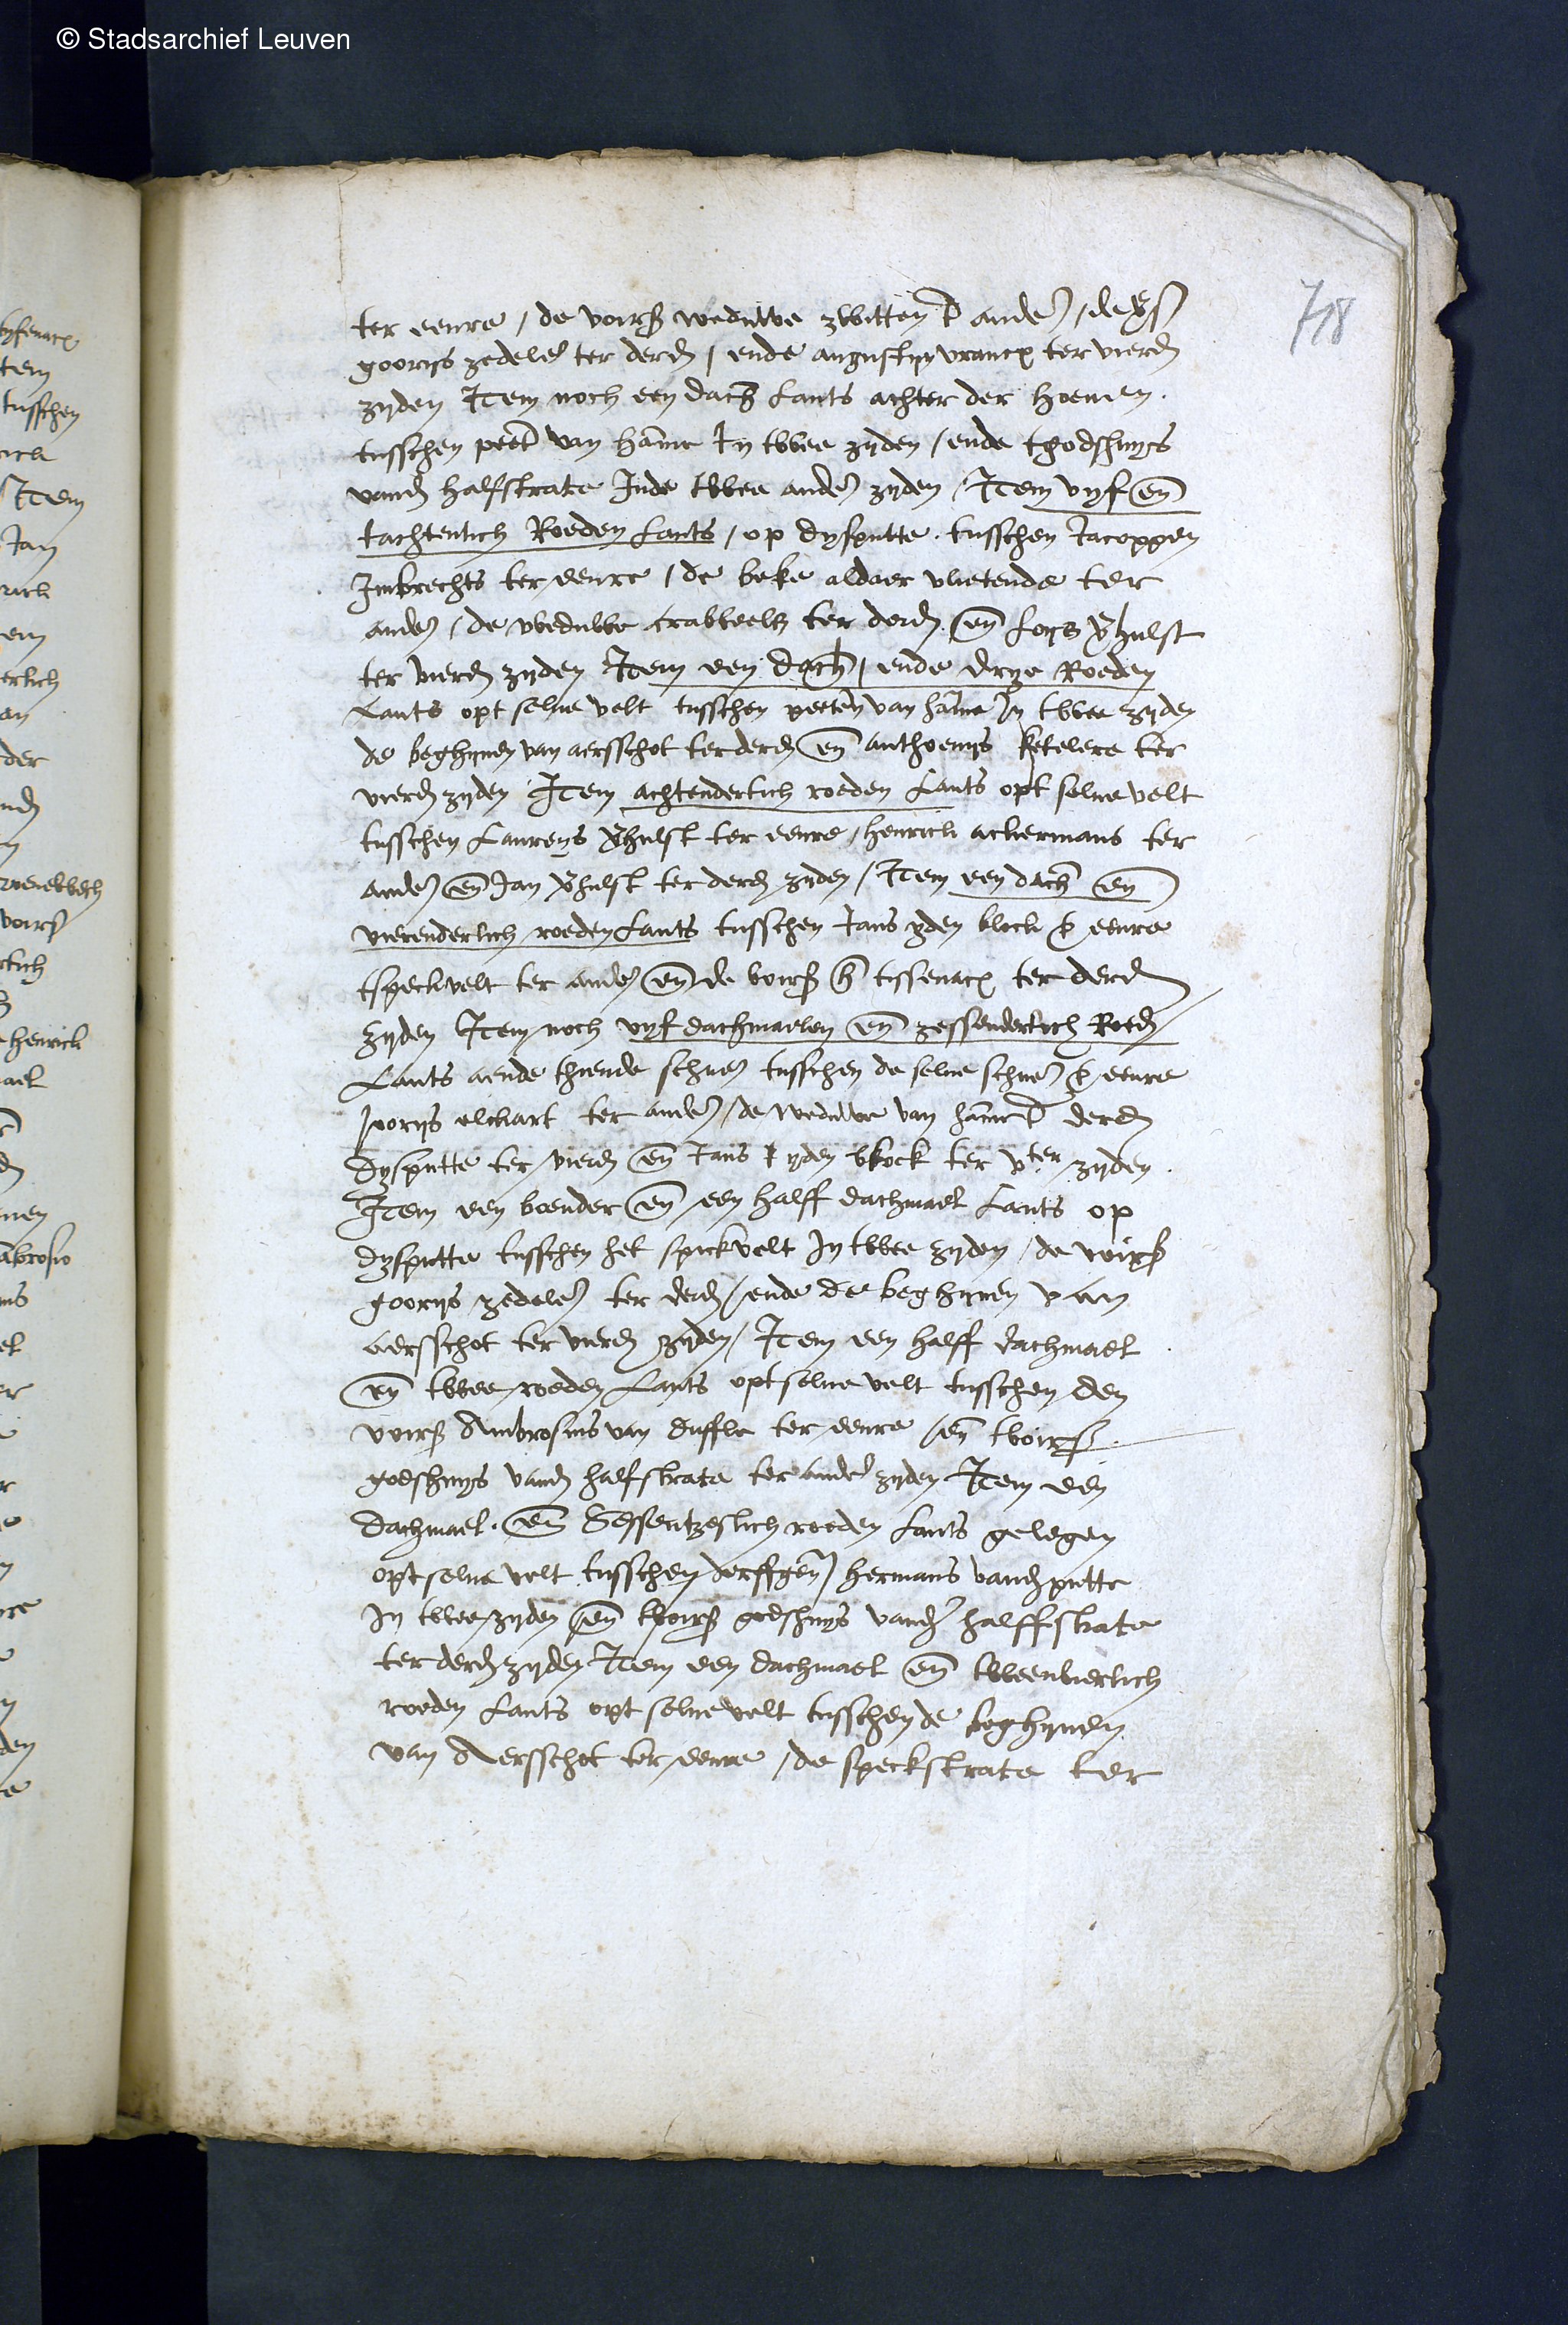 © Stadsarchief Leuven
718
ter eenre / de voirs weduwe zwitten t ander / de
goorys zedeler ter derd / ende augustyn vrancx ter vierd
zyden Item noch een dach lants achter der hoeuen
tusschen peet van hame in twee zyden / ende tgodshuys
vand halfstrate Inde twee ander zyden / Item vyf en
tachtentich Roeden lants / op dysputte tusschen Jacoppen
Imbrechts ter eenre / de beke aldaer vlietende ter
ander / de weduwe crabbeels ter derd en loys vhulst
ter vierd zyden Item een dach / ende drye Roeden
Lants opt selue velt tusschen peeten van hame In twee zyden
de beghynen van aersschot ter derd en anthoenys ketelere ter
vierd zyden Item achtendertich roeden Lants opt selue velt
tusschen Laureys vhulst ter eenre / henrick ackermans ter
ander en Jan vhulst ter derd zyden / Item een dach en
vierendertich roeden Lants tusschen Jans yden block t eenre
tspeckvelt ter ander en de voirs tissenacx ter derd
zyden Item noch vyf dachmaelen en zessendertich Roed
Lants aende thiende schuer tusschen de selue schuer t eenre
Joorys elckart ter ander / de weduwe van hame t derd
dysputte ter vierd en Jans yden block ter vter zyden
Item een boender en een halff dachmael Lants op
dysputte tusschen het spickvelt In twee zyden / de voirs
goorys zedeler ter derd / ende de beghynen van
aersschot ter vierd zyden / Item een halff dachmael
en twee roeden Lants opt selue velt tusschen den
voirs Ambrosius van duffle ter eenre / en tvoirs
godshuys vand halfstrate ter ander zyden Item een
dachmael en Sessentzestich roeden Lants gelegen
opt selue velt tusschen derffgen hermans vand putte
In twee zyden en tvoirs godshuys vander halffstrate
ter derd zyden Item een dachmael en tweenviertich
roeden Lants opt selue velt tusschen de beghynen
van Aersschot ter eenre / de speckstrate ter